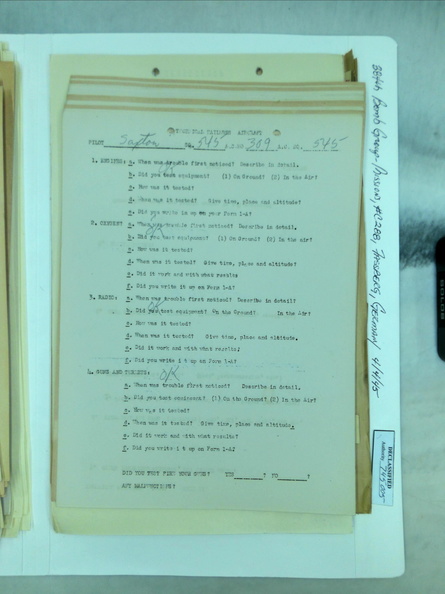 MECHANICAL FAILURES AIRCRAFT
PILOT Saxton SQ. 545 A.C. NO. 309 A.C. SQ. 545
1. ENGINES: a. When was trouble first noticed? Describe in detail.
OK
b. Did you test equipment? (1) On Ground? (2) In the Air?
c. How was it tested?
d. When was it tested? Give time, place and altitude?
e. Did you write it up on your Form 1-A?
2. a. When was trouble first noticed? Describe in detail.
OK
b. Did you test equipment? (1) On Ground? (2) In the air?
c. How was it tested?
d. When was it tested? Give time, place and altitude?
e. Did it work and with what results
f. Did you write it up on Form 1-A?
3. RADIO: a. When was trouble first noticed? Describe in detail?
OK
b. Did you test equipment? On the Ground? In the Air?
c. How was it tested?
d. When was it tested? Give time, place and altitude.
e. Did it work and with what results;
f. Did you write it up on Form 1-A?
4. GUNS AND TURRETS: OK
a. When was trouble first noticed? Describe in detail.
b. Did you test equipment? (1) On the Ground? (2) In the Air?
c. How was it tested?
d. When was it tested? Give time, place and altitude.
e. Did it work and with what results?
f. Did you write it up on Form 1-A?
DID YOU TEST FIRE YOUR GUNS? YES ? NO ?
ANY MALFUNCTIONS?
384th Bomb Group - Mission, #288, Germany 4/4/45
DECLASSIFIED
Authority 745005